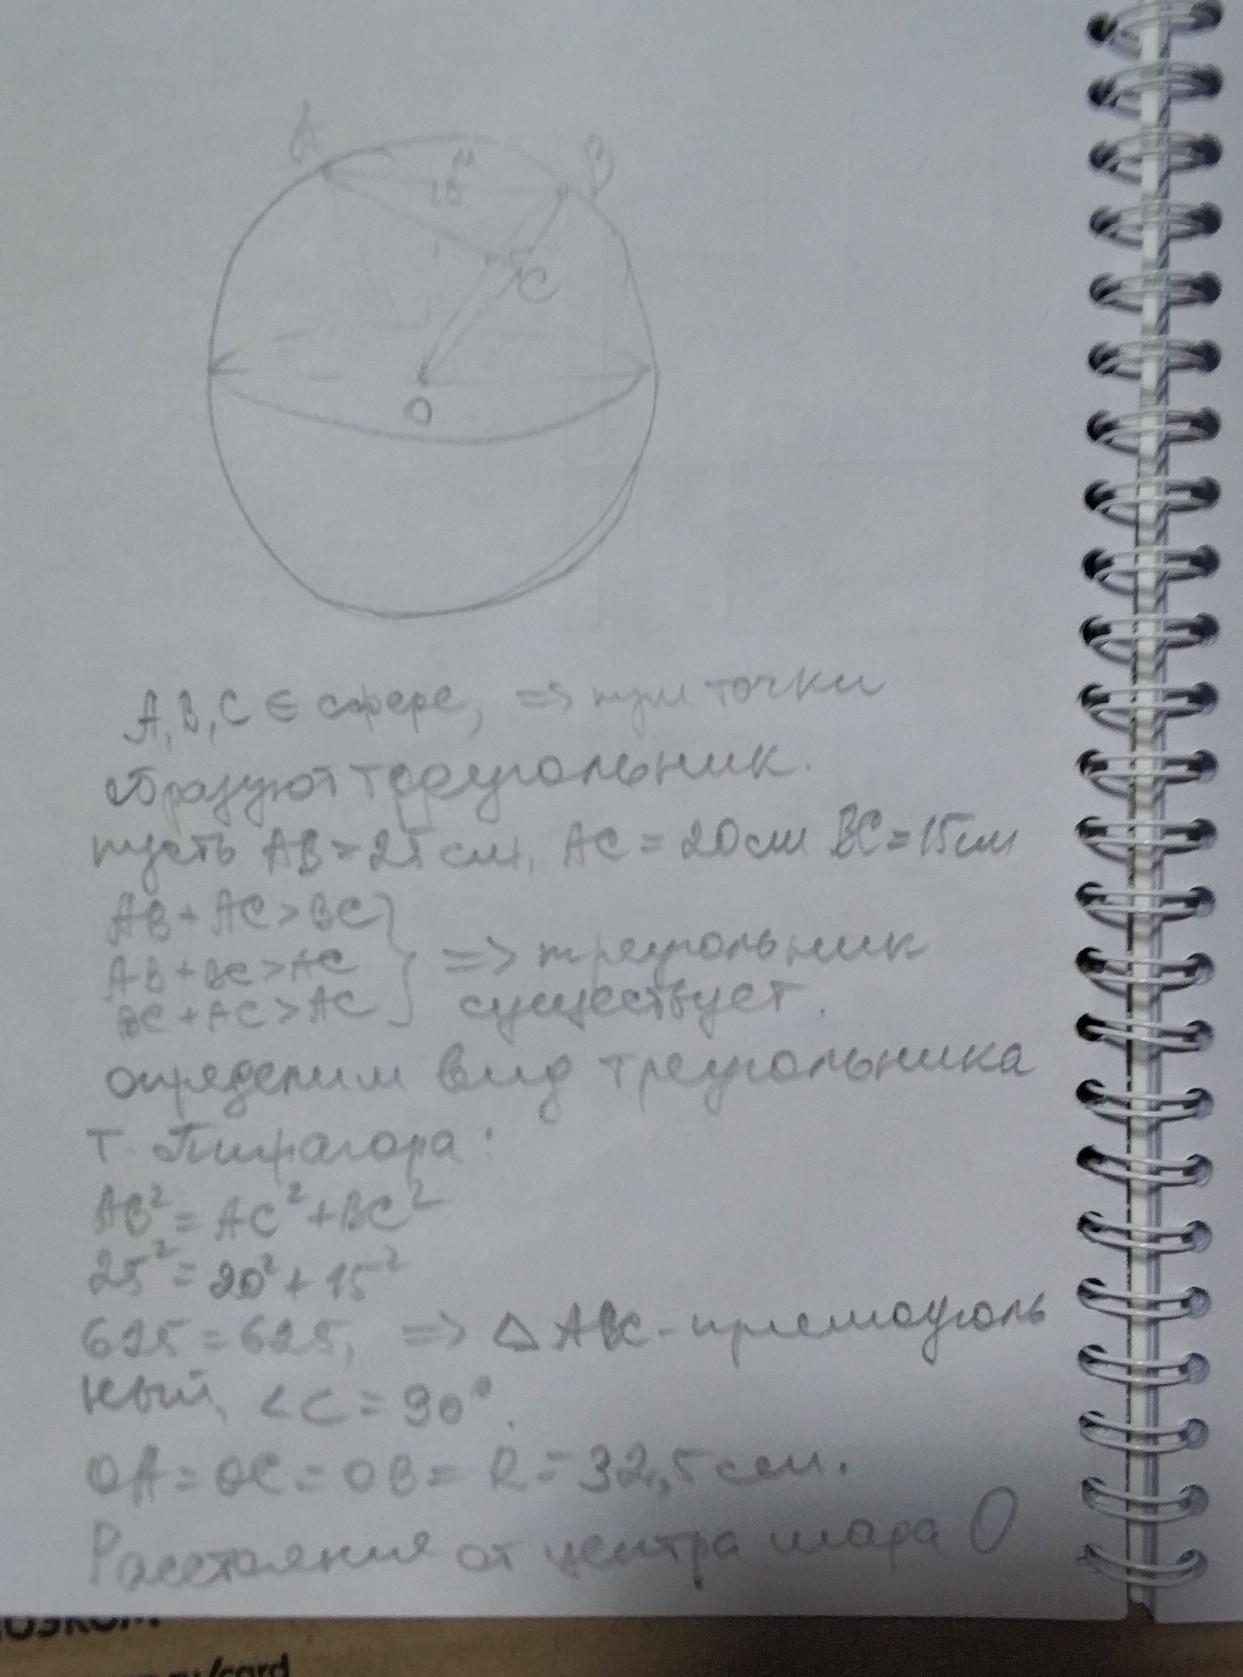 A
B
C
O
A, B, C ∈ сфере, => три точки
образуют треугольник.
пусть AB = 25 см, AC = 20 см BC = 15 см
AB + AC > BC
AB + BC > AC
BC + AC > AC
=> треугольник
существует.
определим вид треугольника
Т. Пифагора:
AB² = AC² + BC²
25² = 20² + 15²
625 = 625, => △ ABC - прямоуголь
ный, <C = 90°.
OA = OC = OB = R = 32,5 см.
Расстояния от центра шара O